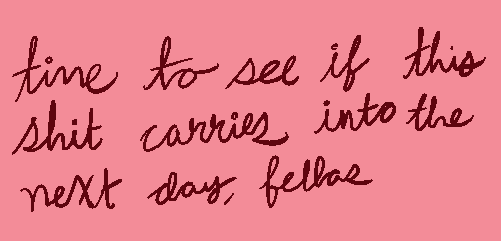 time to see if this
shit carries into the
next day, fellas